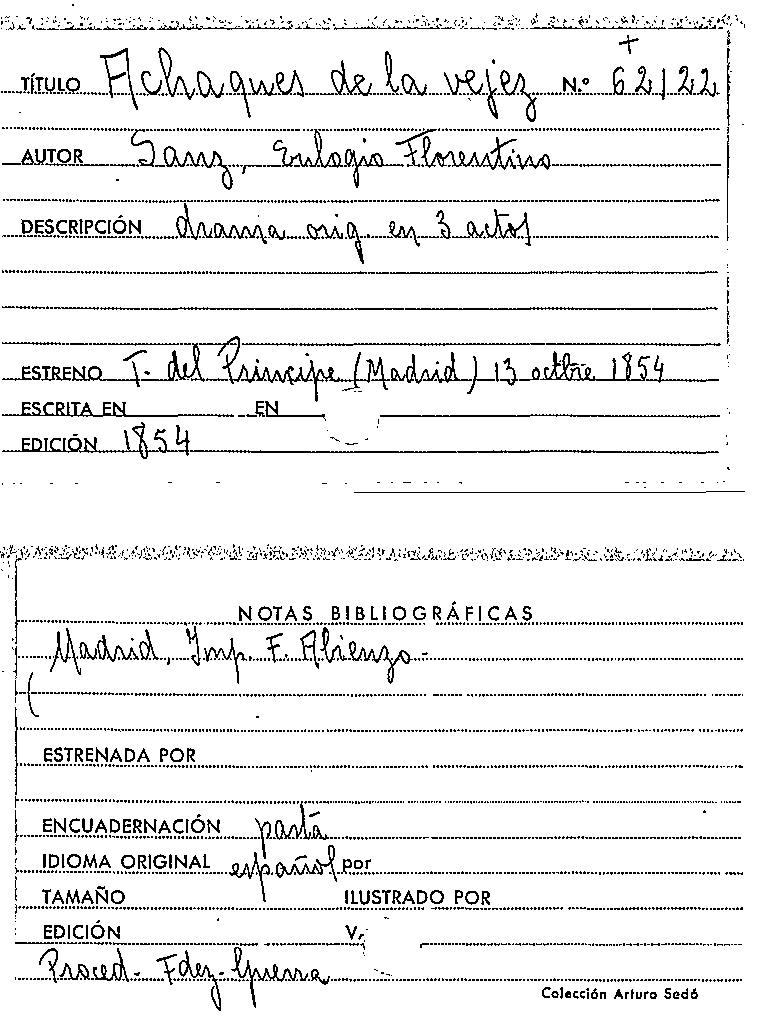 TÍTULO Achaques de la vejez N.º 62122
AUTOR Sanz, Eulogio Florentino
DESCRIPCIÓN drama orig. en 3 actos
ESTRENO T. del Principe (Madrid) 13 octbre 1854
ESCRITA EN EN
EDICIÓN 1854
NOTAS BIBLIOGRÁFICAS
Madrid, Imp. F. Abienzo -
ESTRENADA POR
ENCUADERNACIÓN pasta
IDIOMA ORIGINAL español por
TAMAÑO ILUSTRADO POR
EDICIÓN V.
Proced- Fdez-Guerra
Colección Arturo Sedó